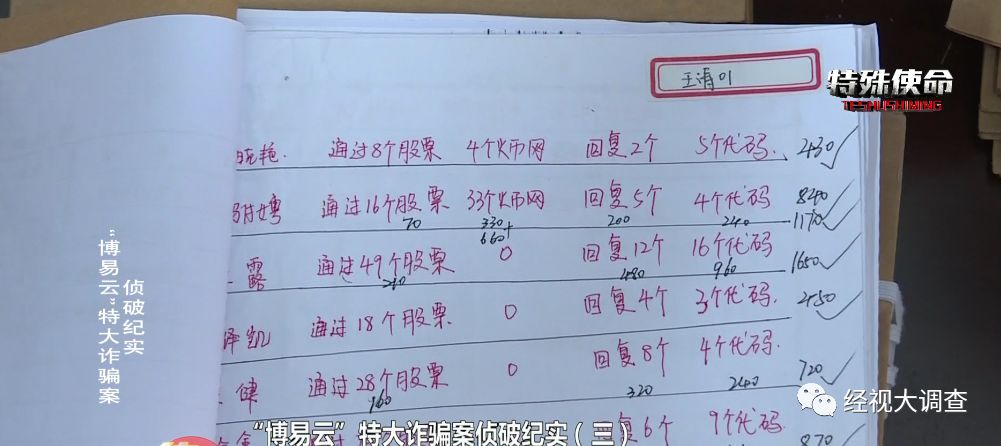 王清01
特殊使命
TESHUSHIMING
晓艳. 通过8个股票 4个火币网 回复2个 5个代码. 430
娉 通过16个股票 33个火币网 回复5个 4个代码 840
70 330 200 240 1170
660+
露 通过49个股票 0 回复12个 16个代码 1650
210 480 960
泽凯 通过18个股票 0 回复4个 3个代码. 450
健 通过28个股票 0 回复8个 4个代码. 720
160 320 240
回复6个 9个代码. 870
“博易云”特大诈骗案
侦破纪实
“博易云”特大诈骗案侦破纪实（三）
经视大调查